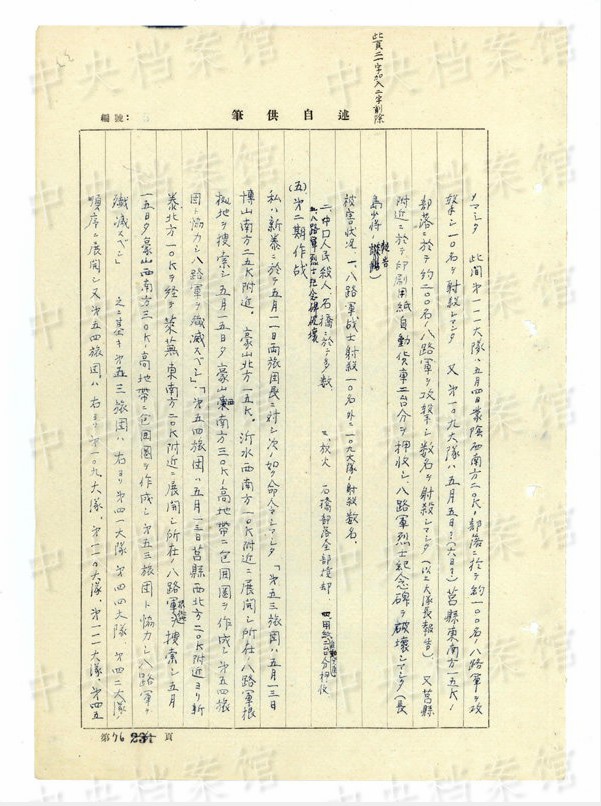 此頁二一字加入二字削除
編號：
筆供自述
ノマシタ 此间第一一一大隊ハ五月四日蒙陰西南方二〇K、部落ニ於テ約一〇〇名ノ八路軍ヲ攻
撃シ一〇名ヲ射殺シマシタ 又第一〇九大隊ハ五月五日？(六日？)莒縣東南方一五K、
部落ニ於テ約二〇〇名ノ八路軍ヲ攻撃シ数名ヲ射殺シマシタ(以上大隊長報告)、又莒縣
附近ニ於テ印刷用紙自動貨車二台分ヲ押收シ、八路軍烈士紀念碑ヲ破壊シマシタ(長
島少将 報告)
被害状况 一、八路軍战士射殺一〇名外ニ一〇九大隊ノ射殺数名、
二、中囗人民殺人 石橋ニ於テ多数 三、放火 石橋部落全部焼却、四、用紙二台分押収
五、八路軍烈士紀念碑破壊
(五)第二期作战
私ハ新泰ニ於テ五月一一日両旅囯長ニ対シ次ノ如ク命令シマシタ「第五三旅囯ハ五月一三日
博山南方二五K附近、蒙山北方一五K、沂水西南方一〇K附近ニ展開シ所在ノ八路軍根
拠地ヲ搜索シ五月一五日夕蒙山西南方三〇K、高地帯ニ包囲圏ヲ作成シ第五四旅
囯ト協力シ八路軍ヲ殲滅スベシ」「第五四旅囯ハ五月一三日莒縣西北方二〇K附近ヨリ新
泰北方一〇Kヲ経テ萊蕪東南方二〇K附近ニ展開シ所在ノ八路軍ヲ搜索シ五月
一五日夕蒙山西南方三〇K、高地帯ニ包囲圏ヲ作成シ第五三旅囯ト協力シ八路軍ヲ
殲滅スベシ」 之ニ基キ第五三旅囯ハ右ヨリ第四一大隊、第四四大隊、第四二大隊、
順序ニ展開シ又第五四旅囯ハ右ヨリ第一〇九大隊、第一一〇大隊、第一一一大隊、第四五
第76 231 頁
中央档案馆